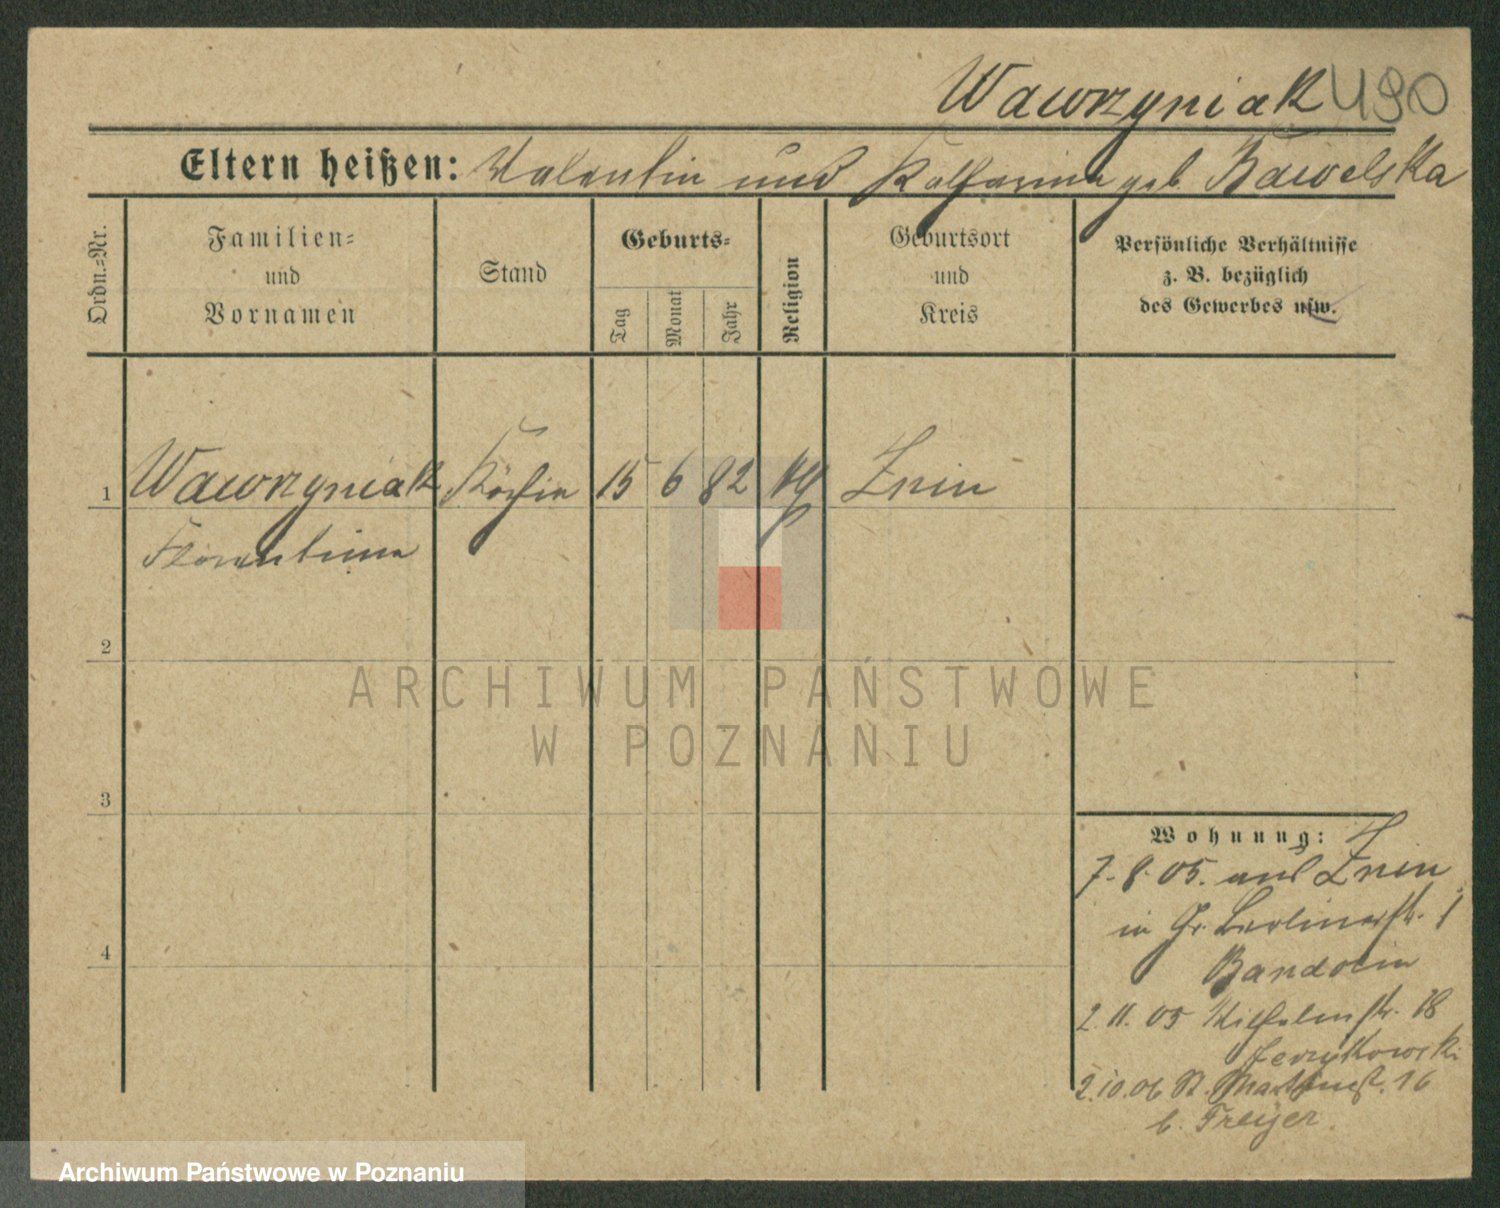 Wawrzyniak 490
Eltern heißen: Valentin und Katharina geb. Bawelska
Ordn.-Nr.
Familien-
und
Vornamen
Stand
Geburts-
Tag
Monat
Jahr
Religion
Geburtsort
und
Kreis
Persönliche Verhältnisse
z. B. bezüglich
des Gewerbes usw.
1 Wawrzyniak Köchin 15 6 82 kth Znin
Florentina
2
3
4
Wohnung:
7. 8. 05. aus Znin
in Gr. Berlinerstr. 1
Bandolin
2. 11. 05 Wilhelmstr. 18
Jerzykowski
2.10.06 St. Martinst. 16
b. Freyer.
ARCHIWUM PAŃSTWOWE
W POZNANIU
Archiwum Państwowe w Poznaniu